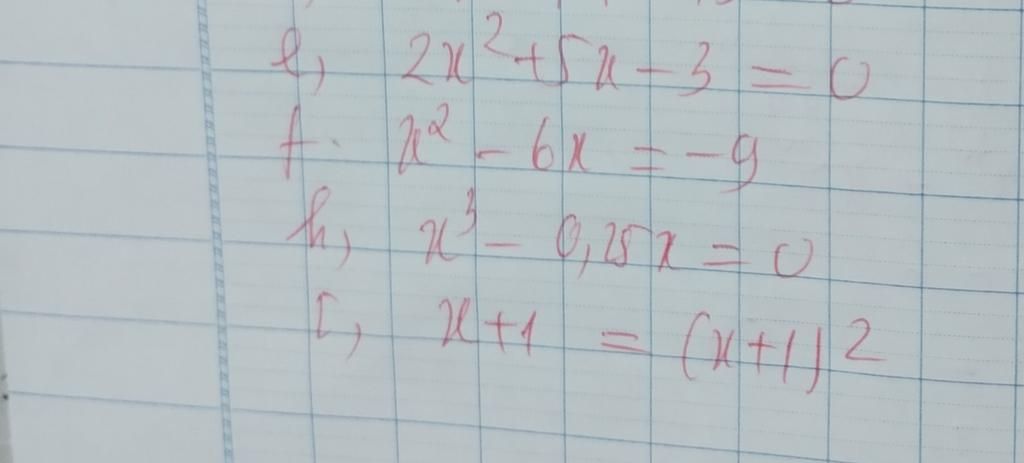 e, 2x² + 5x - 3 = 0
f. x² - 6x = -9
h, x³ - 0,25x = 0
i, x+1 = (x+1)²